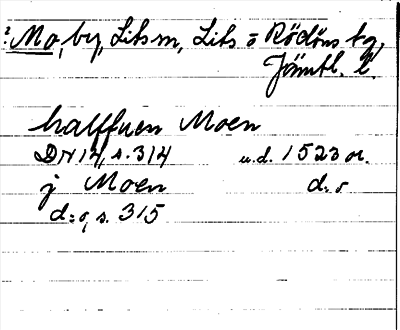 ² Mo, by, Litsm, Lits o Rödöns tg,
Jämtl. l.
halffuen Moen
DN 14, s. 314 u.d. 1523 or.
j Moen d:o
d:o, s. 315